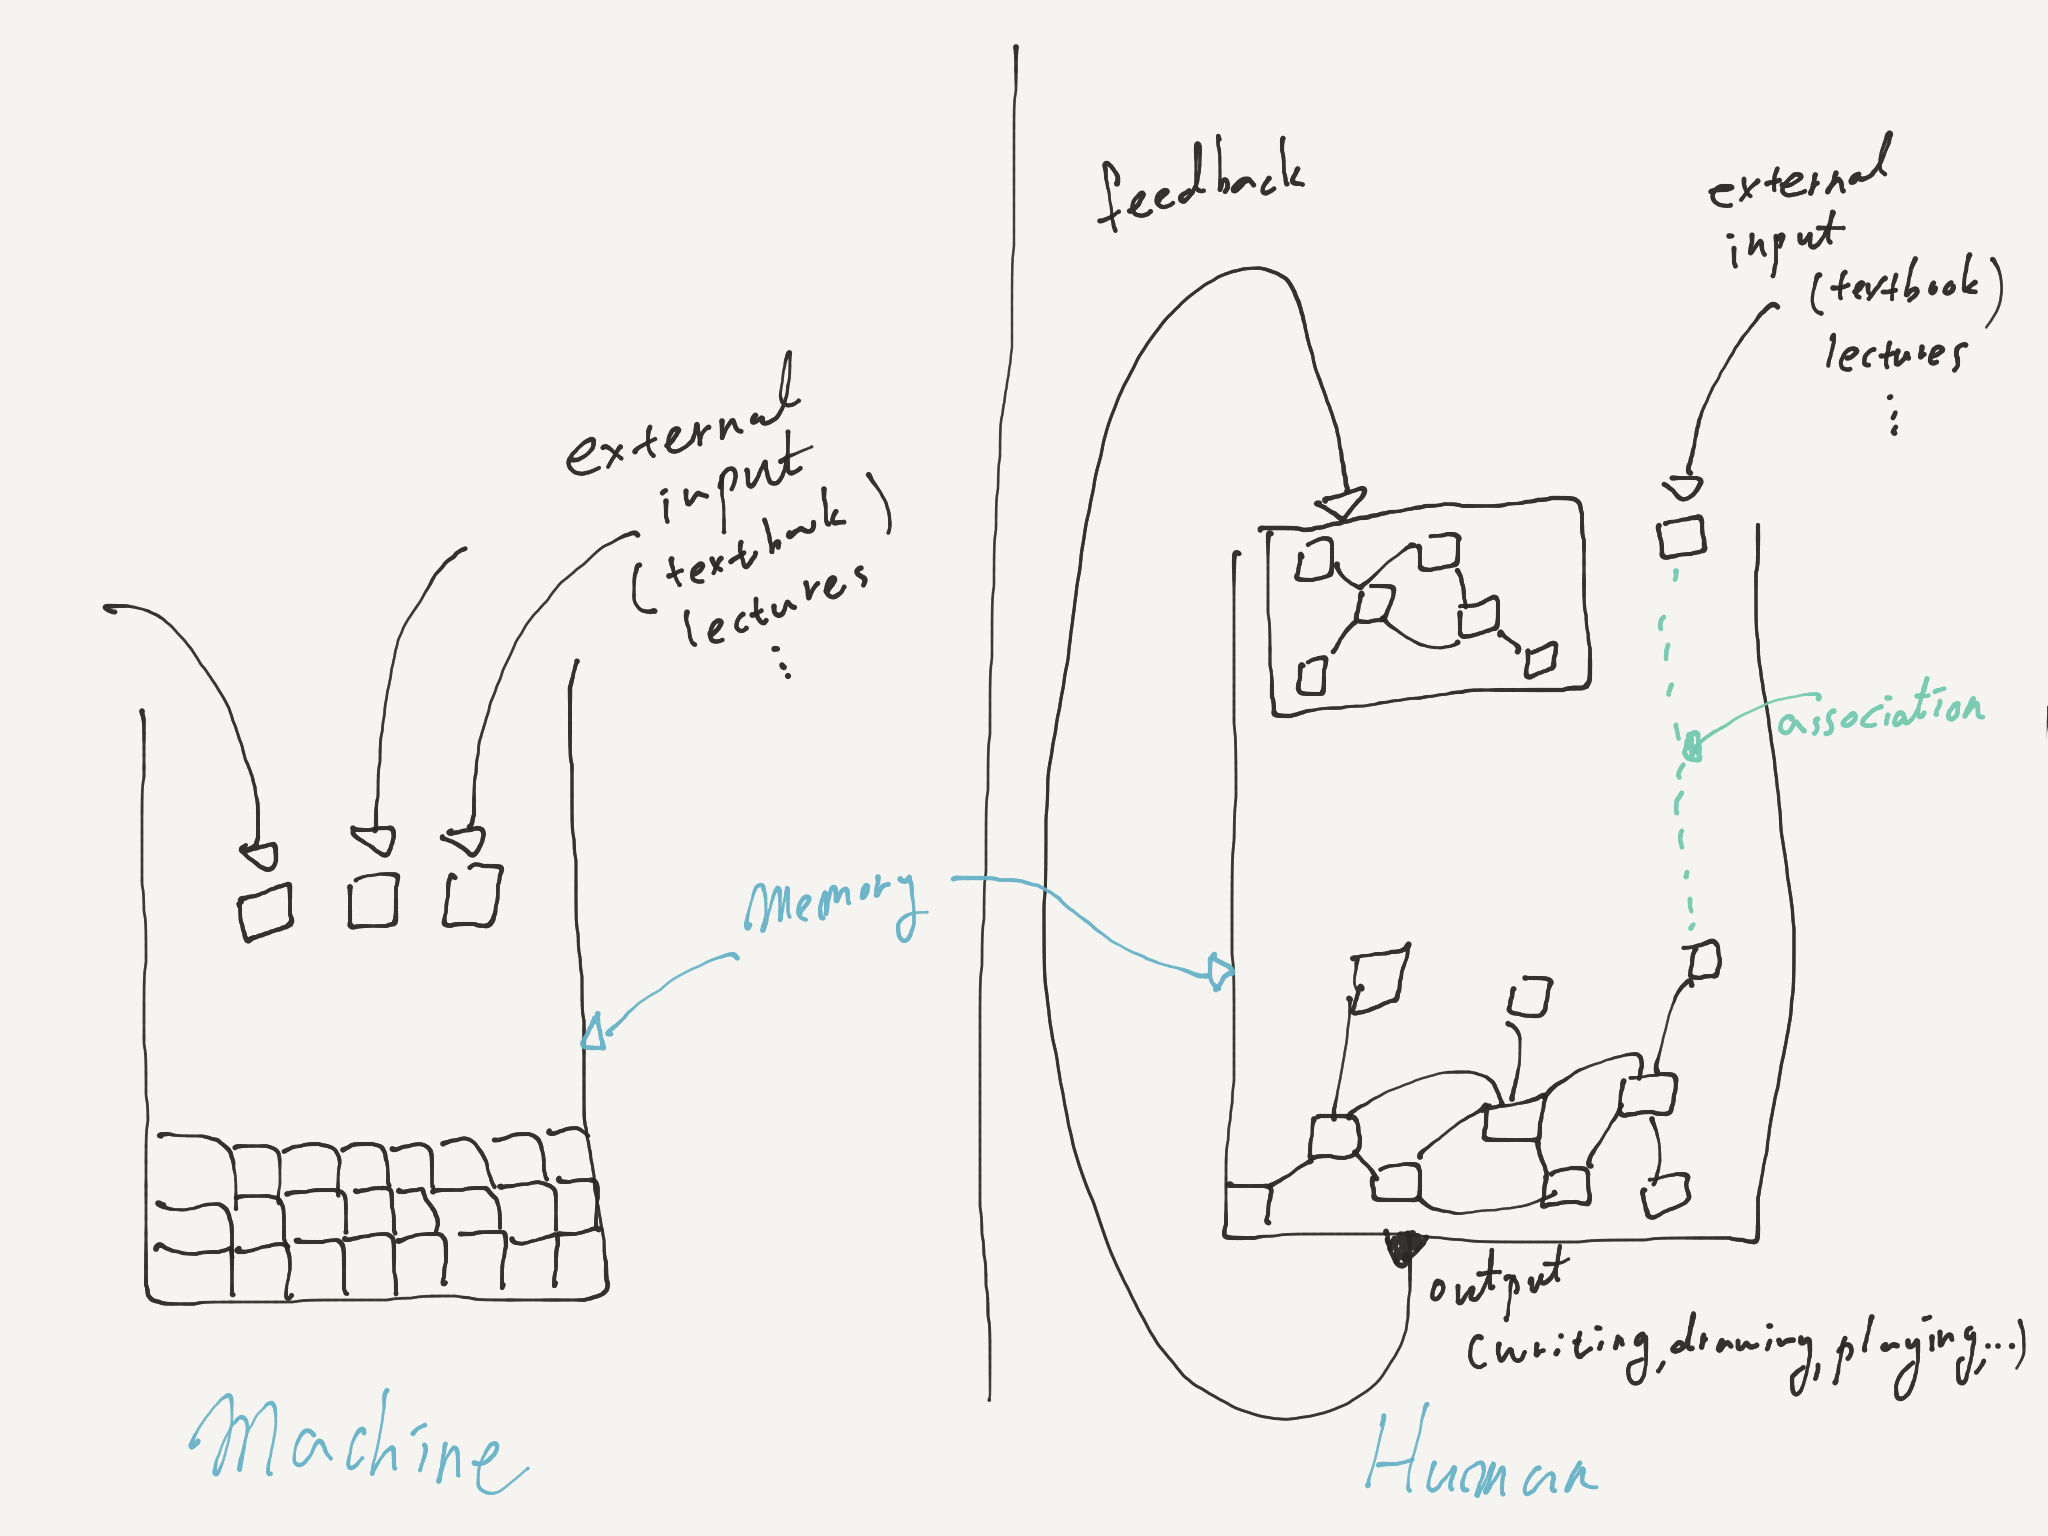 external
input
(textbook)
lectures
⋮
Memory
Machine
feedback
external
input
(textbook)
lectures
⋮
association
output
(writing, drawing, playing,...)
Human